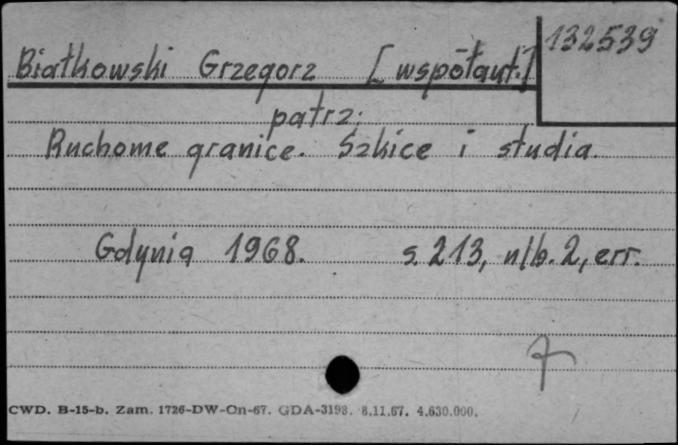 132539
Białkowski Grzegorz [współaut.]
patrz:
Ruchome granice. Szkice i studia.
Gdynia 1968. s. 213, nlb. 2, err.
CWD. B-15-b. Zam. 1726-DW-On-67. GDA-3198. 8.11.67. 4.630.000.